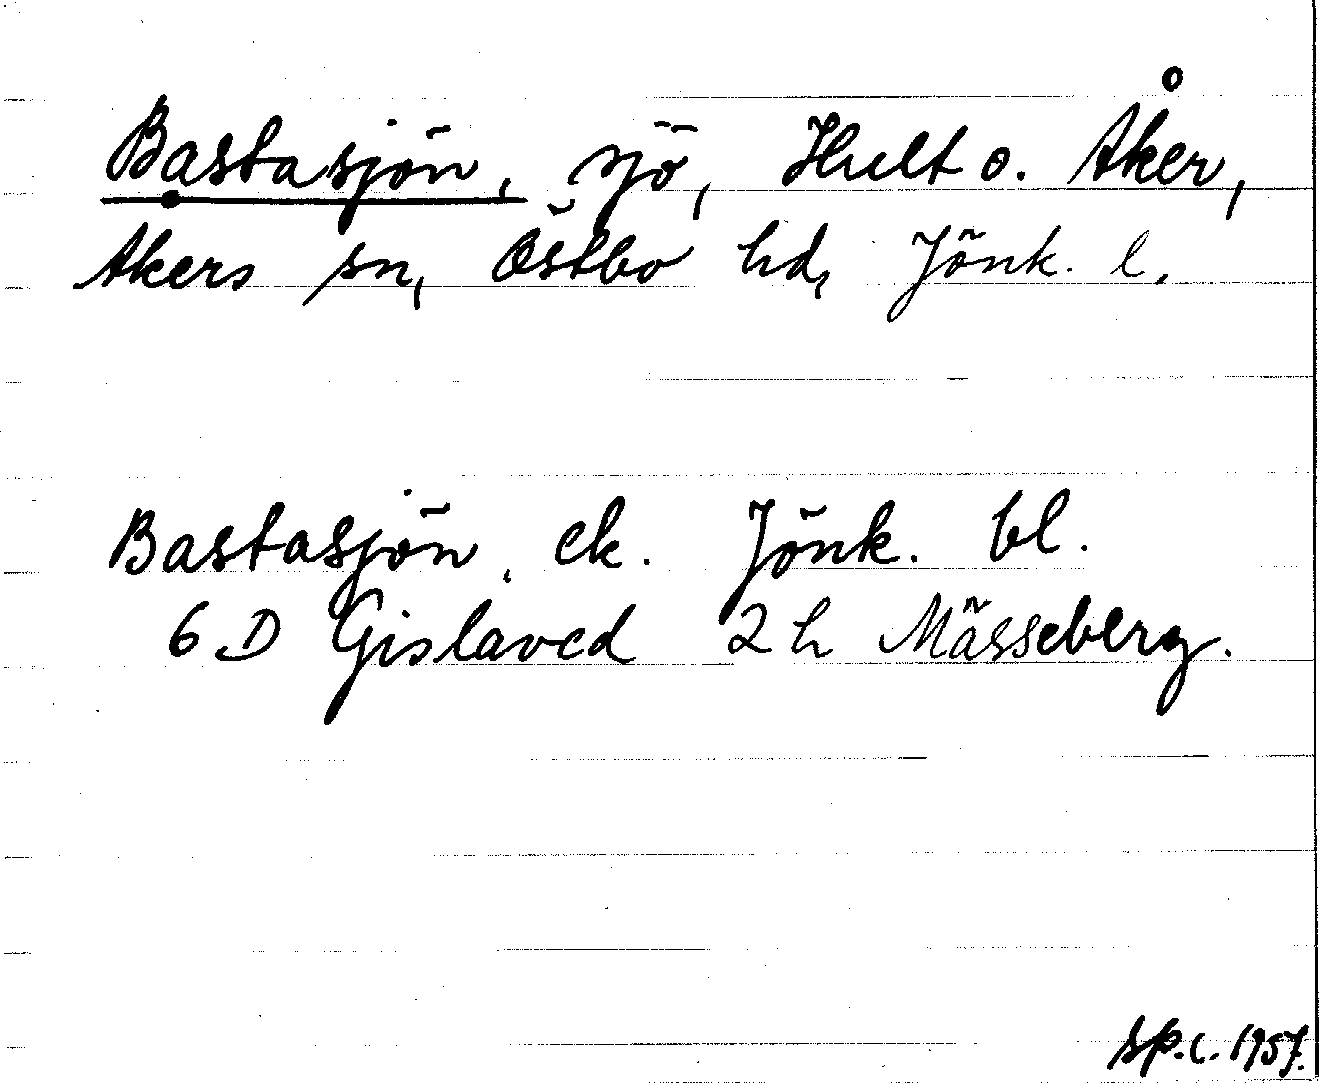 Bastasjön, sjö, Hult o. Åker,
Åkers sn, Östbo hd, Jönk. l.
Bastasjön, ek. Jönk. bl.
6 D Gislaved 2 h Mässeberg.
sp.c. 1957.